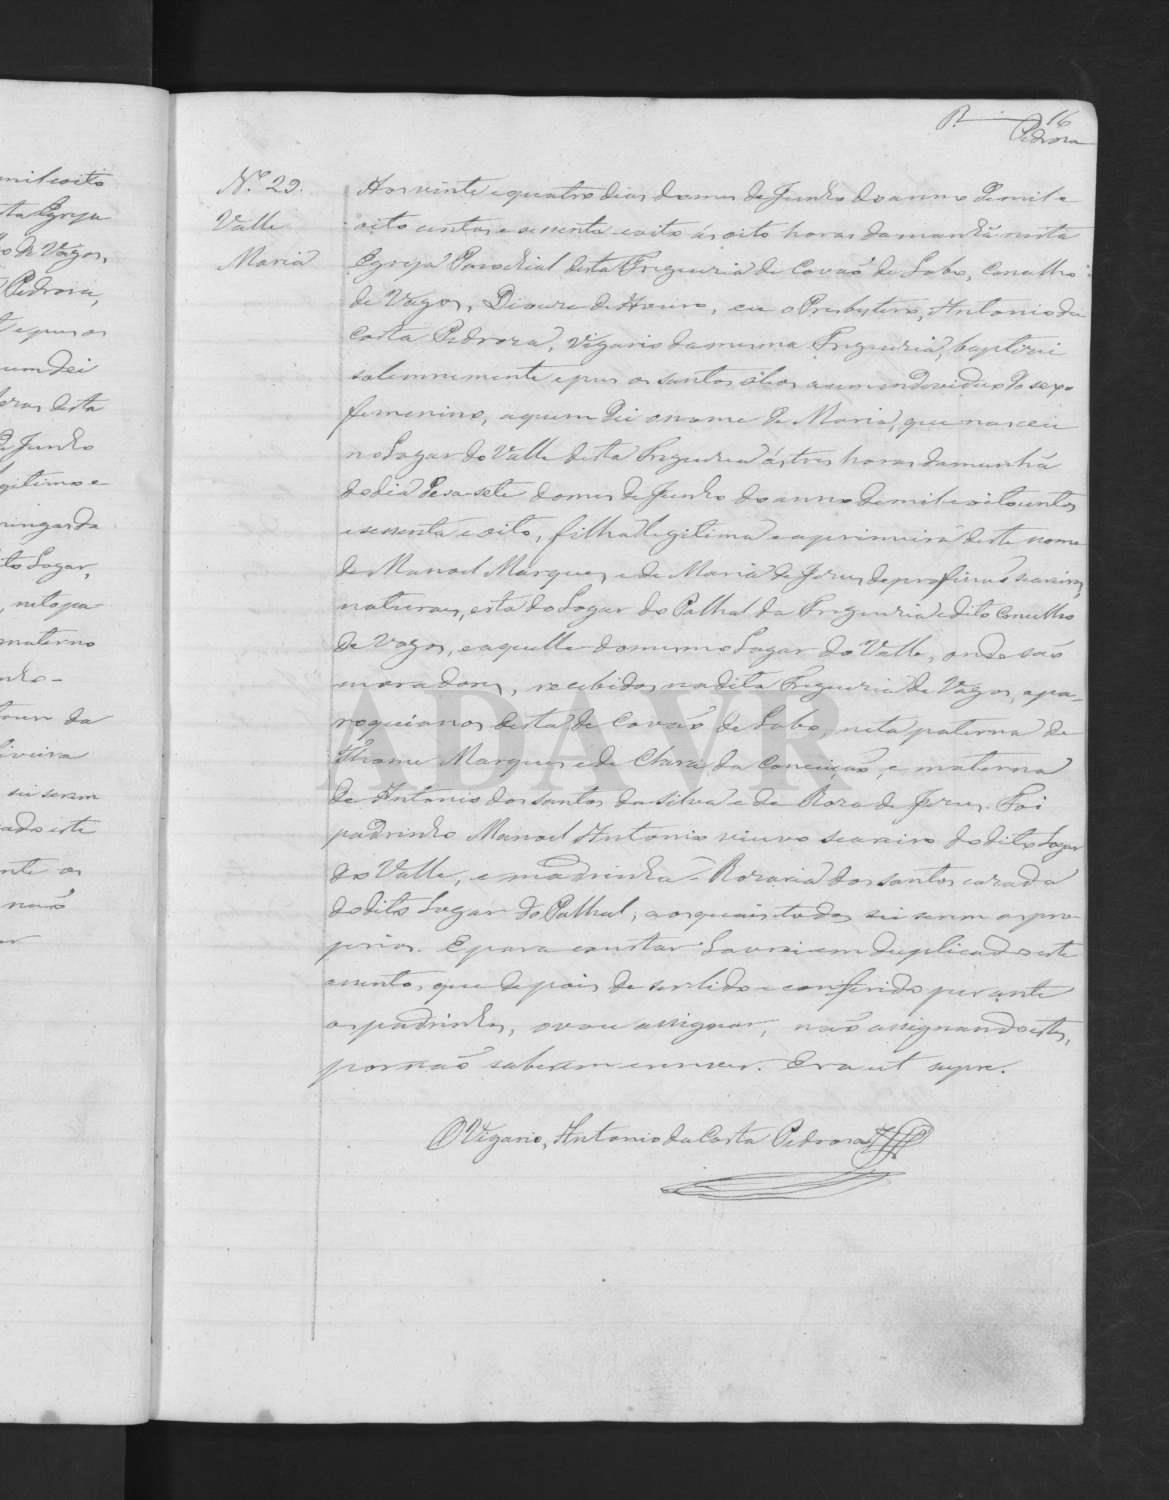 16
Pedroza
N.º 29.
Valle
Maria
Aos vinte e quatro dias do mes de Junho do anno de mil e
oito centos e sessenta e oito ás oito horas da manhã nesta
Egreja Parochial desta Freguezia de Covaõ do Lobo, Concelho
de Vagos, Diocese de Aveiro, eu o Presbytero, Antonio da
Costa Pedroza, Vigario da mesma Freguezia, baptizei
solemnemente e pus os santos oleos a um individuo do sexo
femenino, a quem dei o nome de Maria, que nasceu
no Lugar do Valle desta Freguezia ás tres horas da manhã
do dia desasete do mes de Junho do anno de mil e oito centos
e sessenta e oito, filha legitima e a primeira deste nome
de Manoel Marques e de Maria de Jesus de profissaõ seareiros,
naturaes, esta do Lugar do Palhal da Freguezia e dito Concelho
de Vagos, e aquelle do mesmo Lugar do Valle, onde saõ
moradores, recebidos na dita Freguezia de Vagos, e pa-
roquianos desta de Covaõ do Lobo, neta paterna de
Thome Marques e de Clara da Conceiçaõ, e materna
de Antonio dos santos da silva e de Roza de Jesus. Foi
padrinho Manoel Antonio viuvo seareiro do dito Lugar
do Valle, e madrinha Rozaria dos santos cazada
do dito Lugar do Palhal, aos quais todos sei serem os pro-
prios. E para constar Lavrei em duplicado este
assento, que depois de ser lido e conferido perante
os padrinhos, o vou assignar, naõ assignando estes,
por naõ saberem escrever. Era ut supra.
O Vigario, Antonio da Costa Pedroza
ADAVR
mil e oito
sta Egreja
o de Vagos,
Pedroza,
e pus os
um dei
oras desta
de Junho
gitimo e
to Lugar,
, neto pa-
materno
da
iveira
sei serem
ado este
nte os
naõ